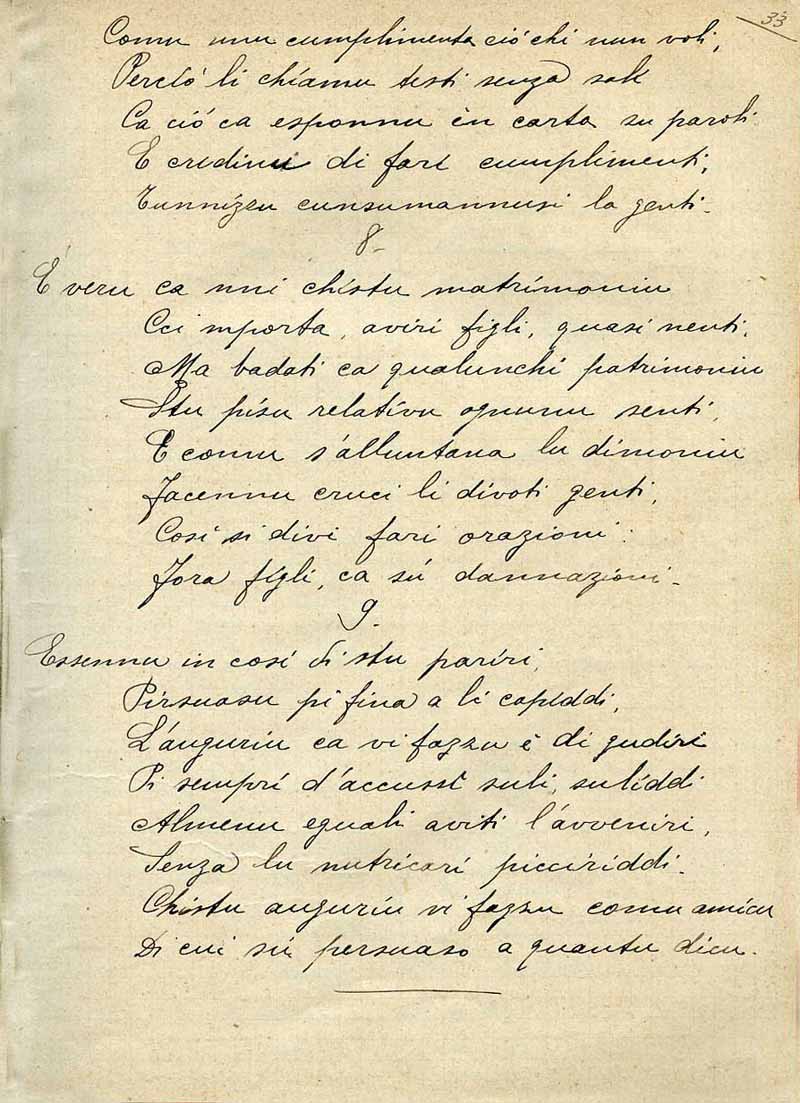 33
Comu unu cumplimenta ciò chi nun voli,
Perciò li chiamu testi senza sali
Ca ciò ca esponnu in carta su paroli
E cridinu di fari cumplimenti,
cunsumannusi la genti.
8-
È veru ca nni chistu matrimoniu
Cci mporta, aviri figli, quasi nenti,
Ma badati ca qualunchi patrimoniu
Stu pisu relativu ognunu senti,
E comu s'alluntana lu dimoniu
Facennu cruci li divoti genti,
Così si divi fari orazioni:
Fora figli, ca sú dannazioni-
9.
Essennu in cosi di stu pariri,
Pirsuasu pi fina a li capiddi,
L'auguriu ca vi fazzu è di gudiri
Pi sempri d'accussì suli, suliddi
Almenu eguali aviti l'avveniri,
Senza lu nutricari picciriddi.
Chistu auguriu vi fazzu comu amicu
Di cui su persuaso a quantu dicu.